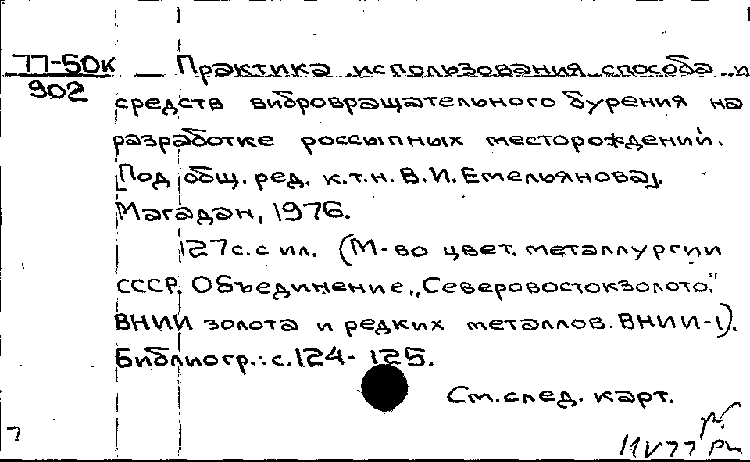 77-50к Практика использования способа и
902 средств вибровращательного бурения на
разработке россыпных месторождений.
[Под общ. ред. к.т.н. В.И. Емельянова].
Магадан, 1976.
127с. с ил. (М-во цвет. металлургии
СССР. Объединение „Северовостокзолото."
ВНИИ золота и редких металлов. ВНИИ-1).
Библиогр.: с.124-125.
См. след. карт.
7
11V77